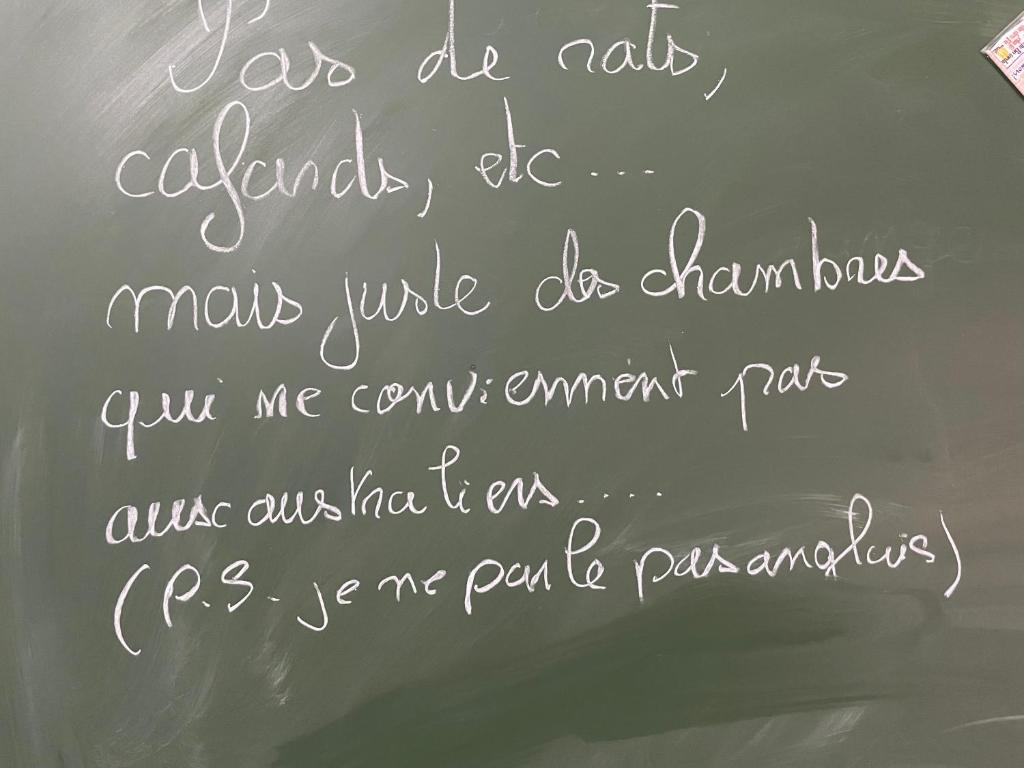 Pas de rats,
cafards, etc....
mais juste des chambres
qui ne conviennent pas
aux australiens.....
(P.S. je ne parle pas anglais)